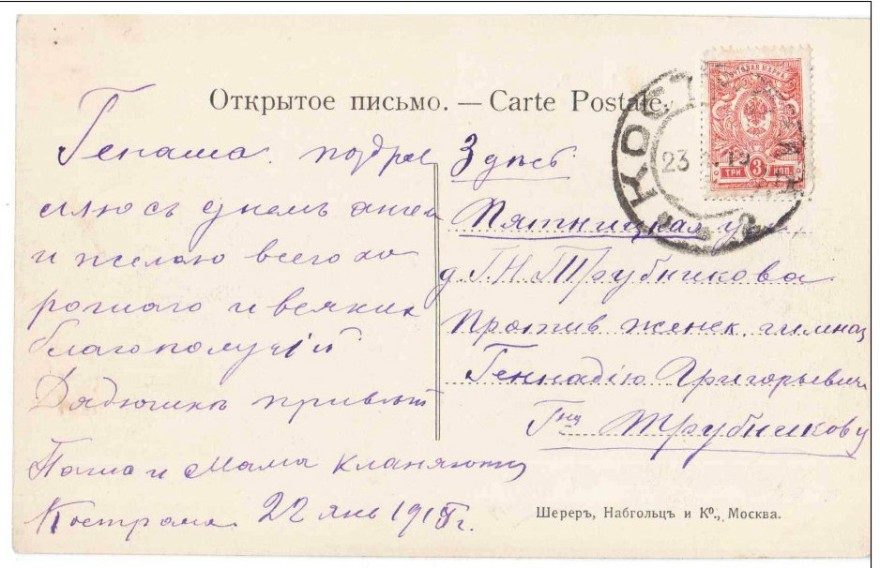 Открытое письмо. — Carte Postale.
Генаша. поздрав
ляю съ днемъ ангела
и желаю всего хо
рошаго и всякихъ
благополучій
Дядюшкѣ привѣтъ
Папа и Мама кланяются
Кострома 22 янв 191 г.
Здѣсь
Пятницкая у
д. Г. Н. Трубникова
Против женск. гимназ
Геннадію Григорьевичу
Гну Трубникову
КОСТРОМА
23
ТРИ 3 КОП
Шереръ, Набгольцъ и Ко., Москва.